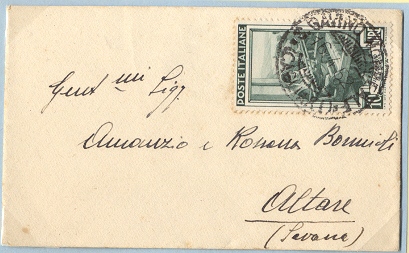 POSTE ITALIANE
10
Gent mi Sigg.
Amanzio e Rosanna Bormioli
Altare
(Savona)